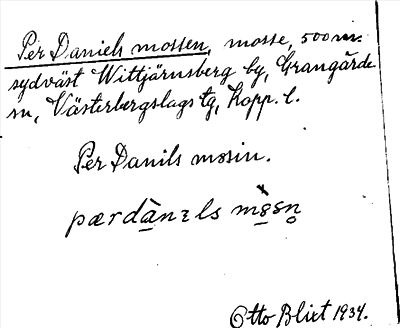 Per Daniels mossen, mosse, 500 m.
sydväst Wittjärnsberg by, Grangärde
sn, Västerbergslags tg, Kopp. l.
Per Danils mosin.
pærdànɛls mòsn̥
Otto Blixt 1934.